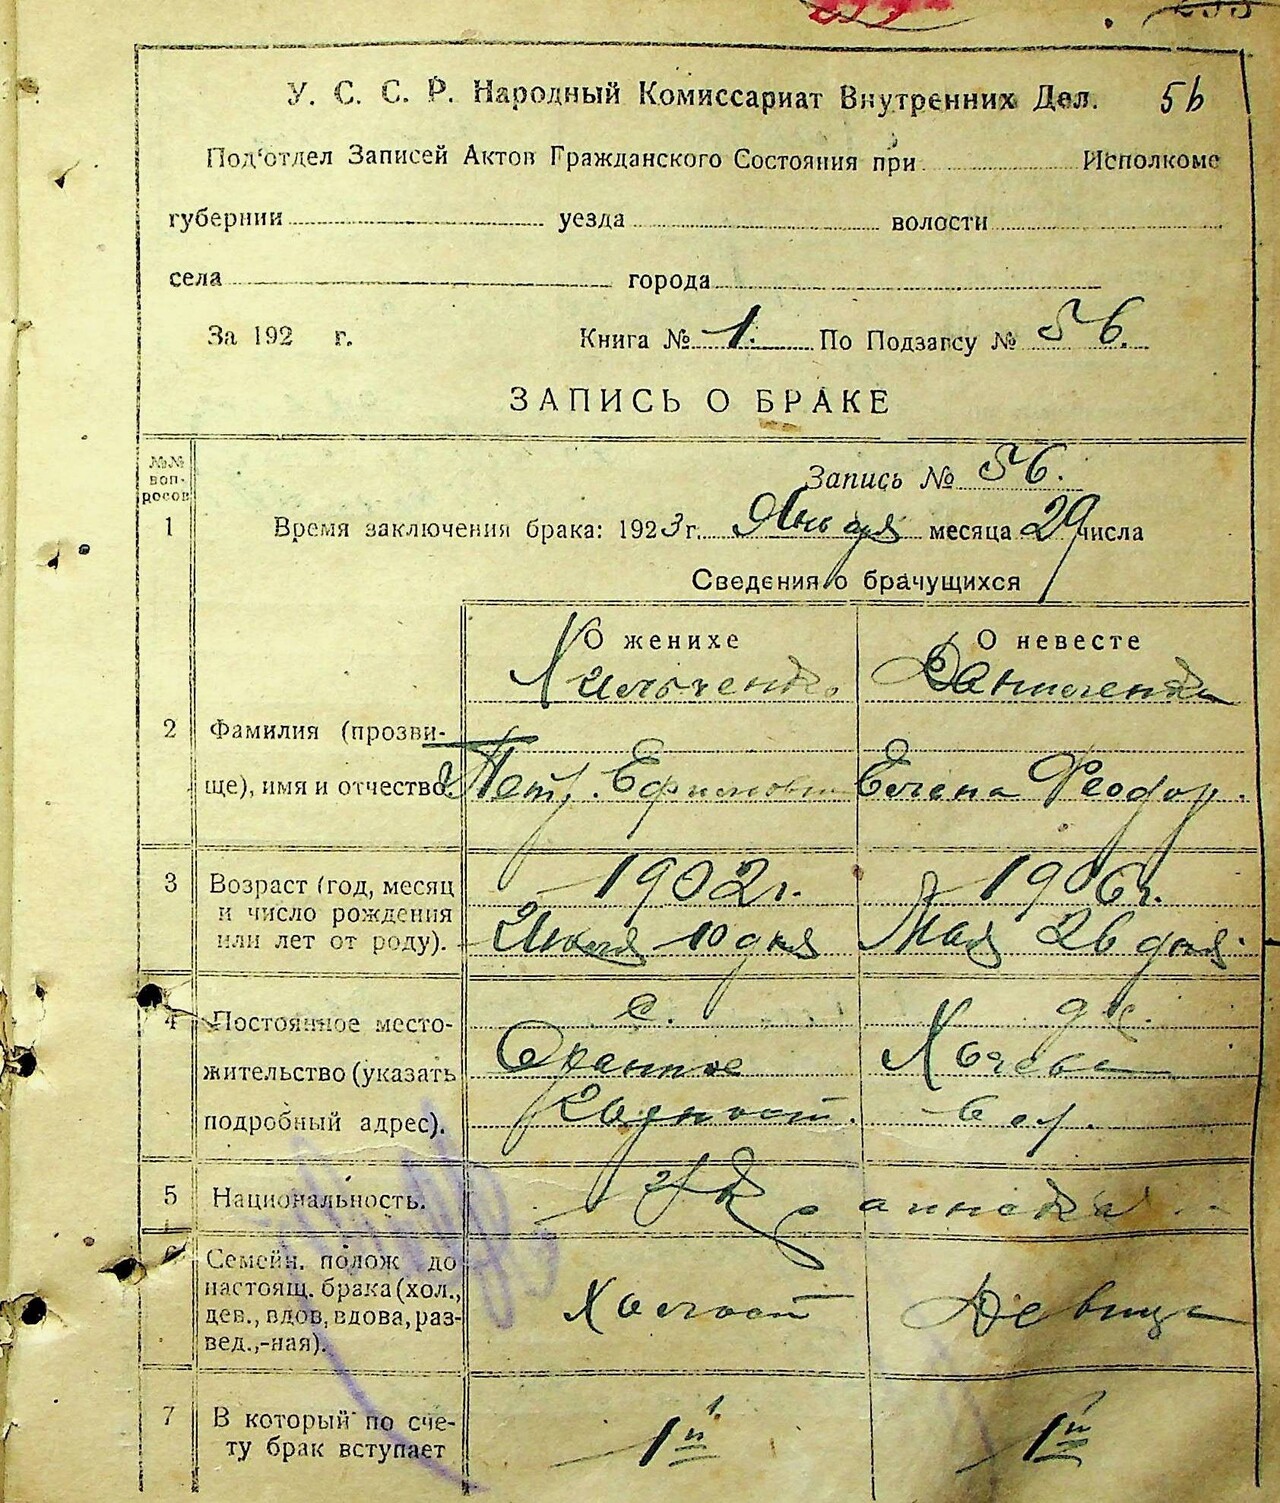 У. С. С. Р. Народный Комиссариат Внутренних Дел. 56
Под'отдел Записей Актов Гражданского Состояния при Исполкоме
губернии уезда волости
села города
За 192 г. Книга № 1. По Подзагсу № 56.
ЗАПИСЬ О БРАКЕ
№№ воп-росов
Запись № 56.
1 Время заключения брака: 1923 г. Января месяца 29 числа
Сведения о брачущихся
О женихе О невесте
2 Фамилия (прозви-
ще), имя и отчество.
Петр. Ефимович Елена Феодор.
3 Возраст (год, месяц
и число рождения
или лет от роду).
1902 г. 1906 г.
10 дня Мая 26 дня.
4 Постоянное место-
жительство (указать
подробный адрес).
с.
5 Национальность.
Украинска
6 Семейн. полож до
настоящ. брака (хол.,
дев., вдов, вдова, раз-
вед.,-ная).
Холост Девица
7 В который по сче-
ту брак вступает
1й 1й